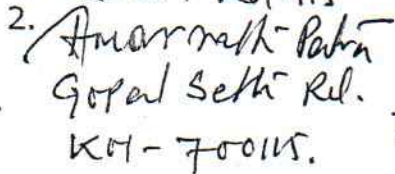 2. Amarnath Patra
Gopal Sethi Rd.
Kol - 700115.